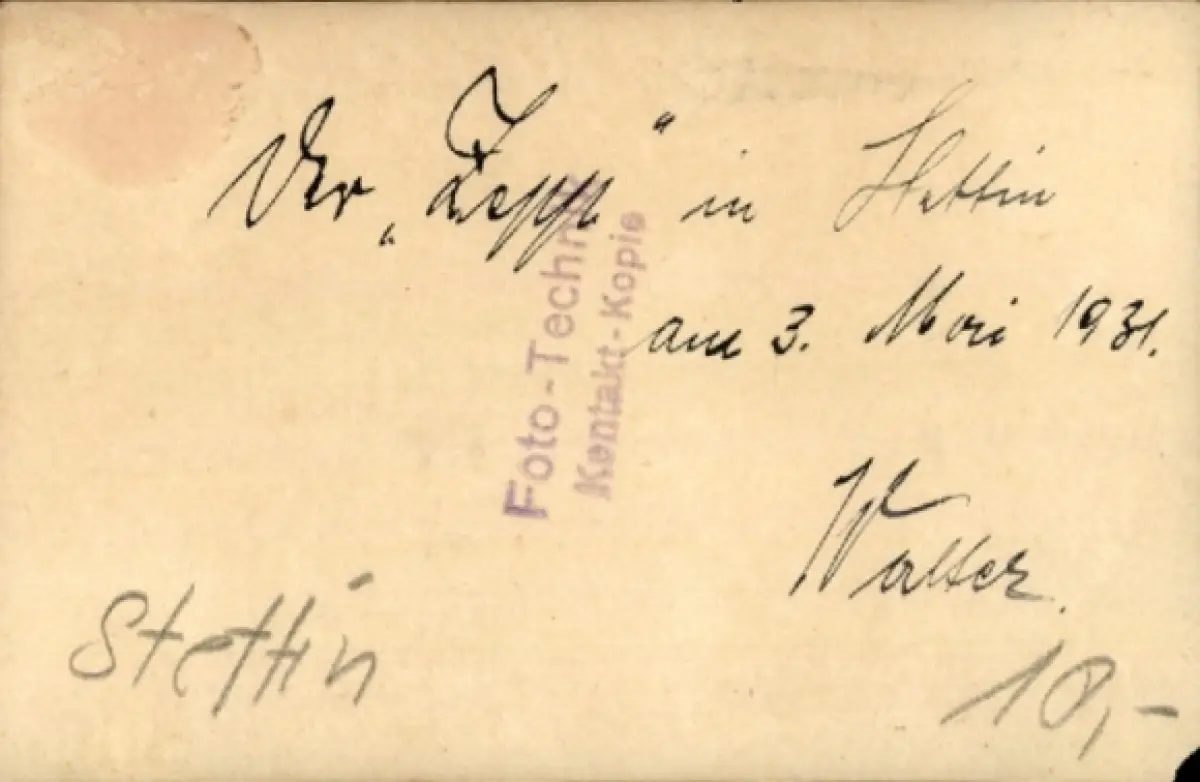 Der „Zepp“ in Stettin
am 3. Mai 1931.
Walter.
Foto-Technik
Kontakt-Kopie
Stettin
10,-